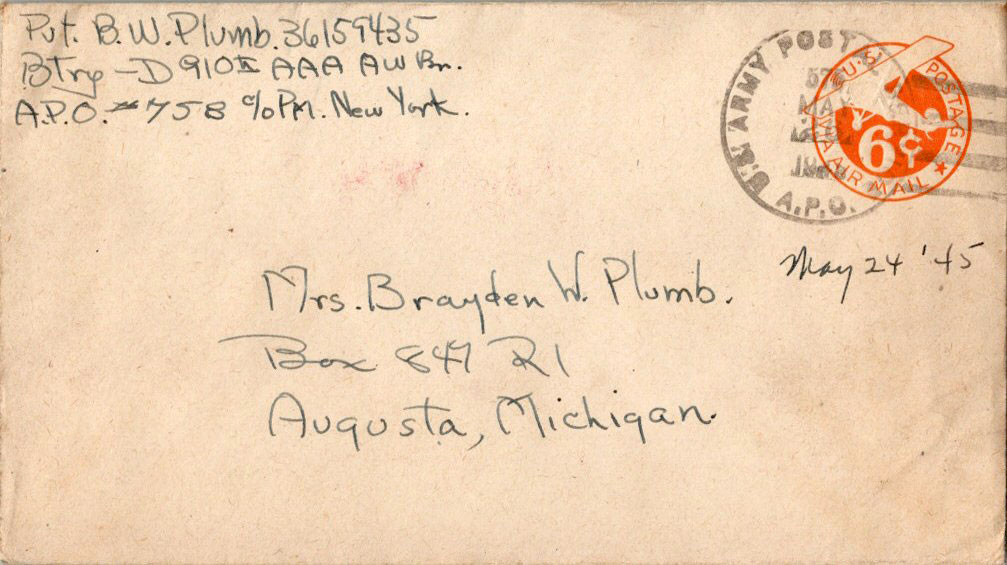 Pvt. B.W. Plumb. 36159435
Btry - D 910th AAA AW Bn.
A.P.O. #758 c/o PM. New York.
U.S. ARMY POST
MAY
A.P.O.
U.S. POSTAGE
6¢
VIA AIR MAIL
May 24 '45
Mrs. Brayden W. Plumb.
Box 847 R1
Augusta, Michigan.